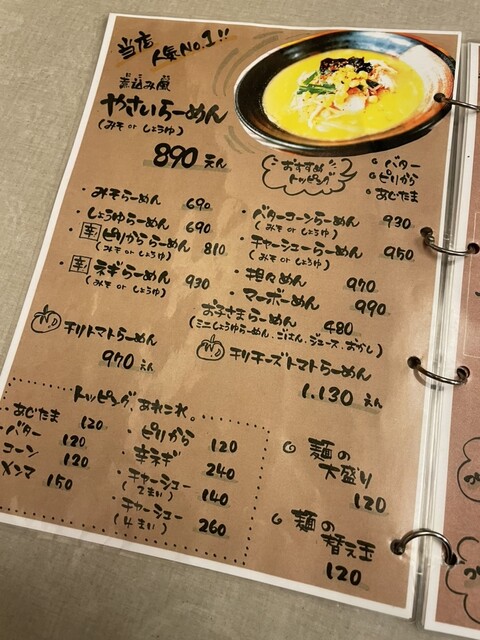 当店
人気No.1!!
煮込み風
やさいらーめん
(みそ or しょうゆ)
890えん
おすすめ
トッピング
バター
ピリから
あじたま
・みそらーめん 690
・しょうゆらーめん 690
・辛ピリかららーめん 810
(みそ or しょうゆ)
・辛ネギらーめん 930
(みそ or しょうゆ)
・バターコーンらーめん 930
(みそ or しょうゆ)
・チャーシューらーめん 950
(みそ or しょうゆ)
・担々めん 970
・マーボーめん 990
お子さまらーめん 480
(ミニしょうゆらーめん、ごはん、ジュース、おかし)
チリトマトらーめん
970えん
チリチーズトマトらーめん
1,130えん
トッピング、あれこれ。
・あじたま 120
・バター 120
コーン 120
メンマ 150
ピリから 120
辛ネギ 240
チャーシュー 140
(2まい)
チャーシュー 260
(4まい)
麺の
大盛り
120
麺の
替え玉
120